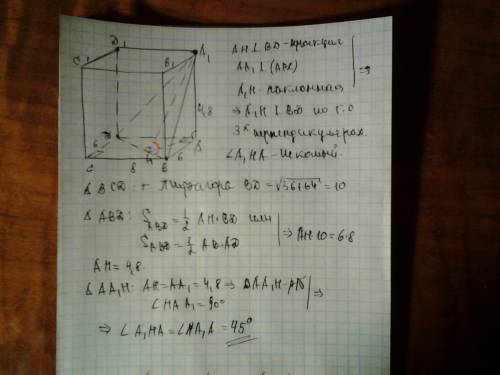 D₁
C₁
B₁
A₁
4,8
D
A
6
H
6
C
8
B
AH⊥BD – проекция
AA₁⊥(ABC)
A₁H – наклонная
⇒ A₁H⊥BD по т. о
3ˣ перпендикулярах.
∠A₁HA – искомый.
⇒
△BCD: т. Пифагора BD=√36+64=10
△ABD: S_ABD=½ AH·BD или
S_ABD=½ AB·AD
⇒ AH·10=6·8
AH=4,8.
△AA₁H: AH=AA₁=4,8 ⇒ △AA₁H – р/б
∠HAA₁=90°
⇒
⇒ ∠A₁HA=∠HA₁A=45°